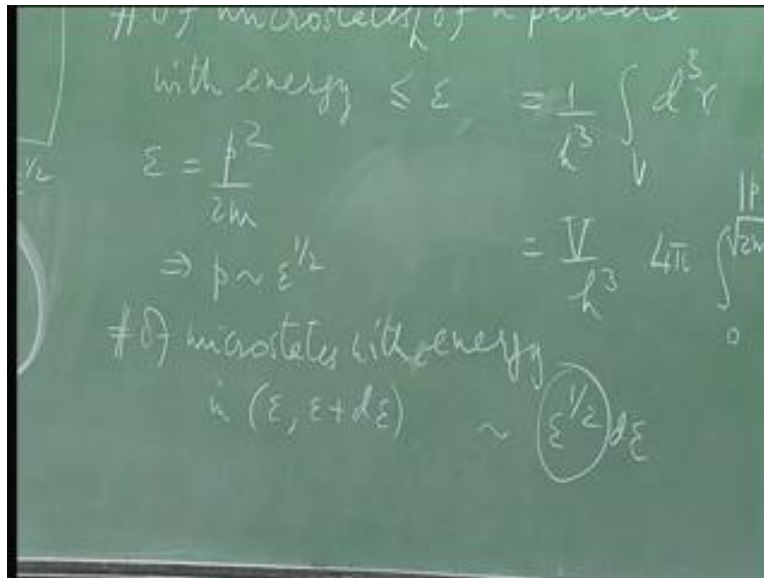 # of microstates of a particle
with energy ≤ ε = 1/h³ ∫_V d³r
ε^{1/2}
ε = p²/2m
⇒ p ~ ε^{1/2} = V/h³ 4π ∫_0
# of microstates with energy
in (ε, ε+dε) ~ ε^{1/2} dε